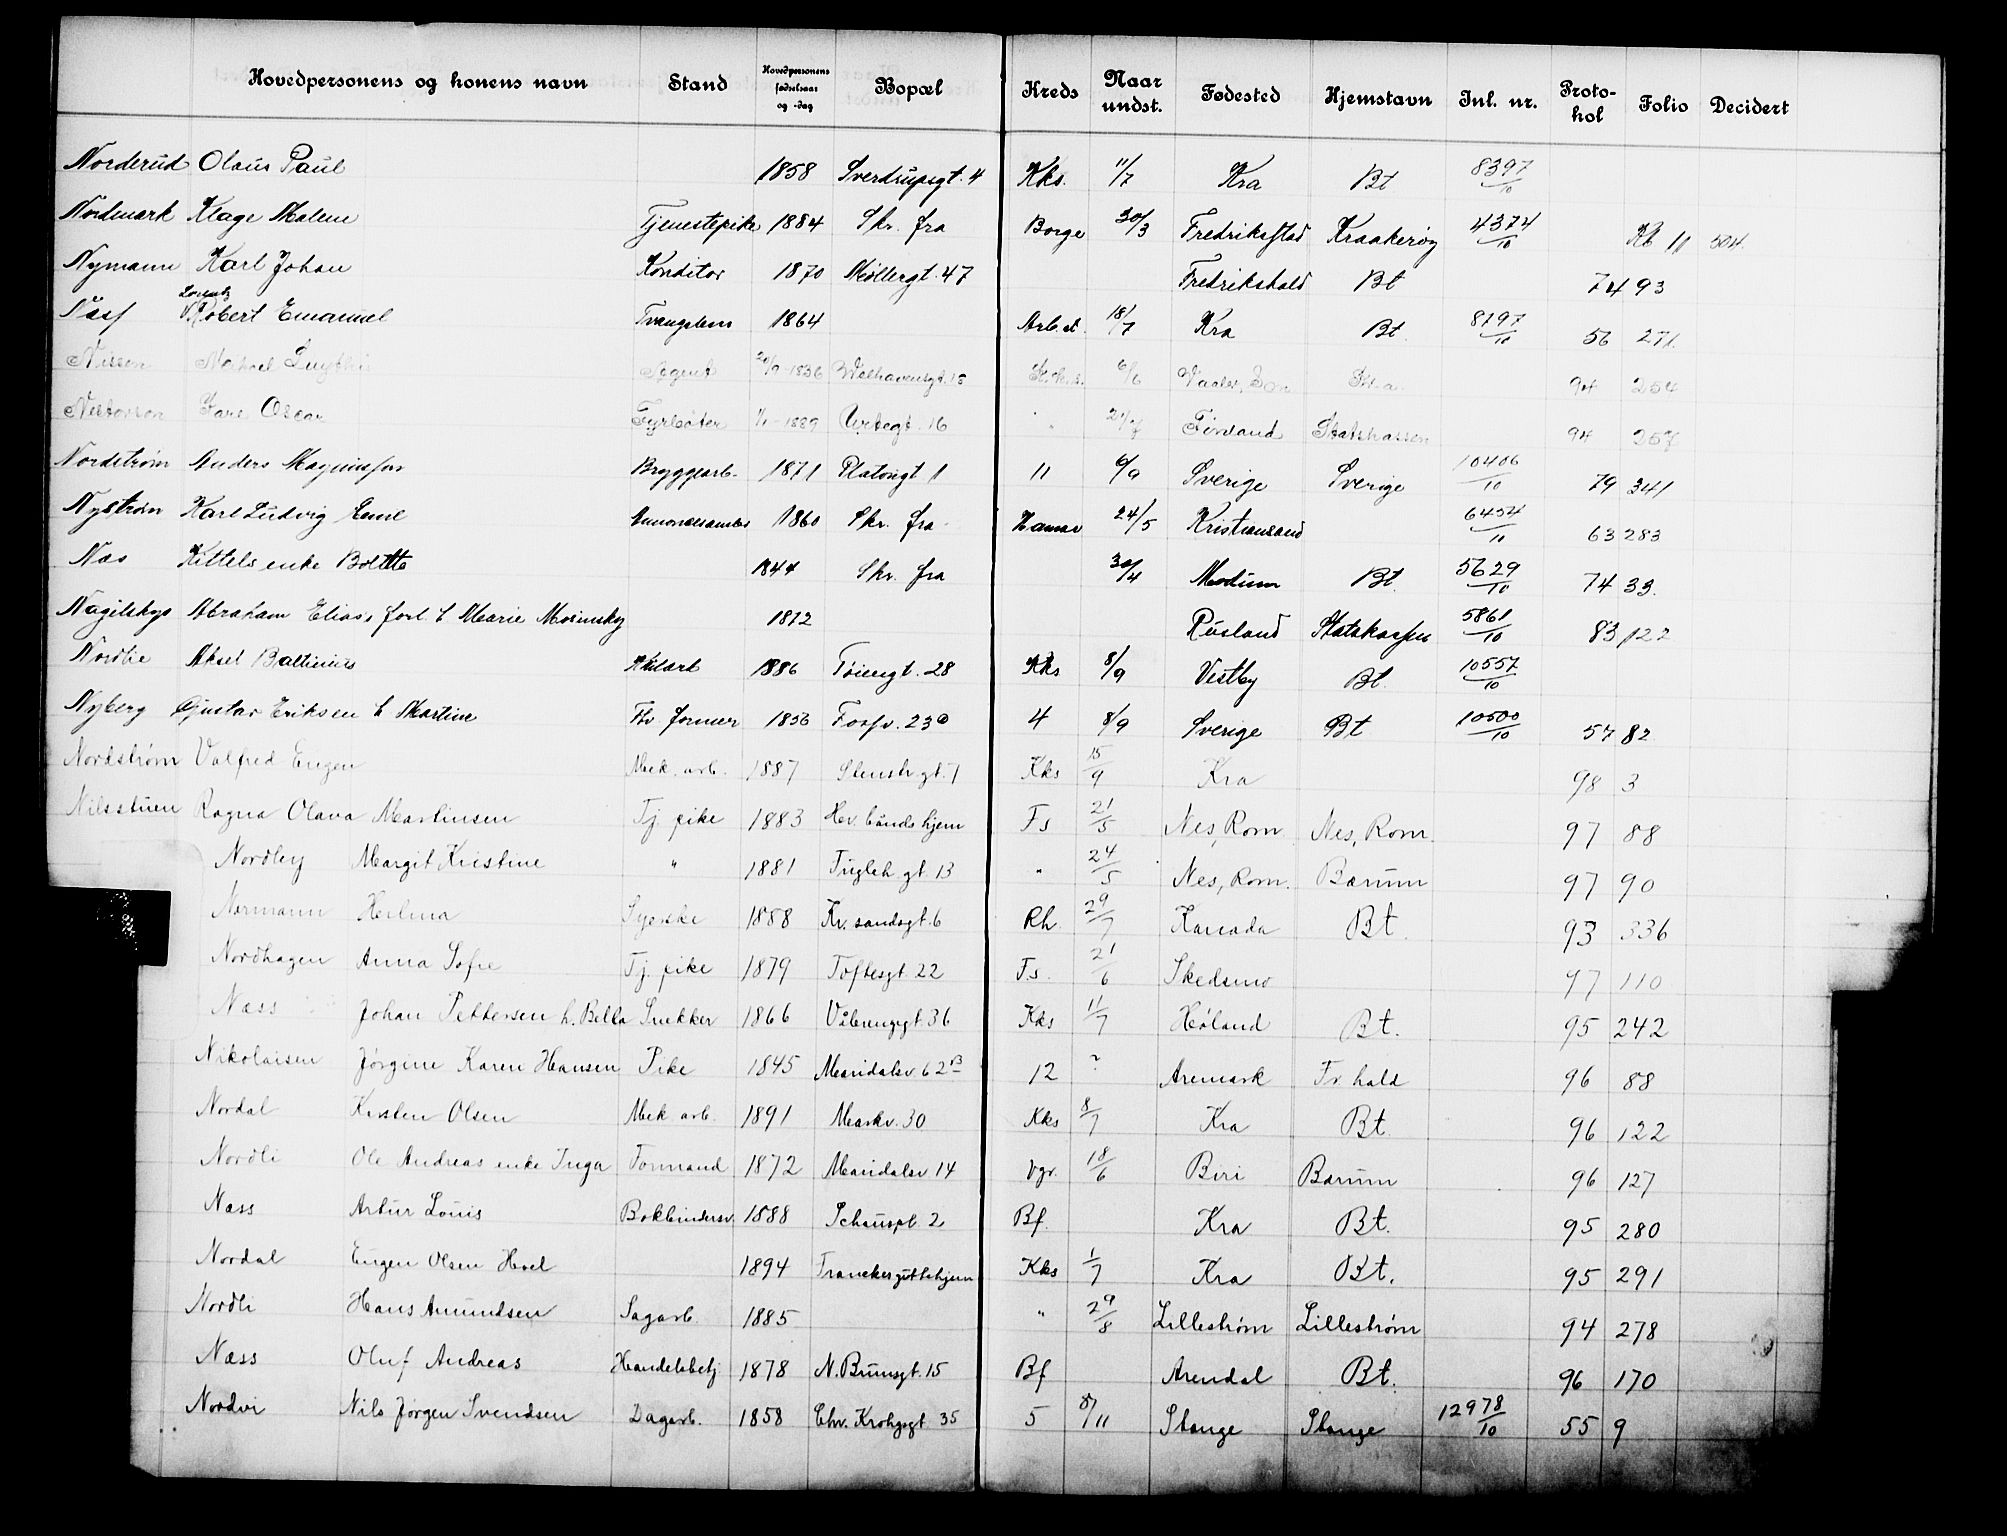 Hovedpersonens og konens navn Stand Hovedpersonens fødselsaar og -dag Bopæl Kreds Naar undst. Fødested Hjemstavn Inl. nr. Proto-kol Folio Decidert
Norderud Olaus Paul 1858 Sverdrupsgt. 4 Kks. 11/7 Kra Bt 8397/10
Nordmark Klage Malene Tjenestepike 1884 Skr. fra Borge 30/3 Fredrikstad Kraakerøy 4374/10 Kb 11 504.
Nymann Karl Johan Konditor 1870 Møllergt. 47 Fredrikshald Bt 74 93
Robert Emanuel Tvangslem 1864 Arb.st. 18/7 Kra Bt. 8197/10 56 271.
Nissen Agent 20/9-1836 Welhavensgt. 15 6/6 94 254
Oscar Fyrbøter 1/1-1889 Urtegt. 16 21/7 Finland Statskassen 94 257
Nordstrøm Anders Magnussen Bryggearb. 1871 Platousgt 1 11 6/9 Sverige Sverige 10406/10 79 341
Nystrøm Karl Ludvig Emil 1860 Skr. fra Hamar 24/5 Kristiansand 6454/11 63 283
Næs Kittels enke Bolette 1844 Skr. fra 30/4 Modum Bt. 5629/10 74 33.
Abraham Elias, forl. t Marie 1872 Rusland Statskassen 5861/10 83 122
Nordlie Aksel Baltinius 1886 Tøiengt. 28 Kks 8/9 Vestby Bt. 10557/10
Nyberg Gustav Eriksen t Martine Fv. former 1856 Fossv. 23a 4 8/9 Sverige Bt 10500/10 57 82
Nordstrøm Valfred Eugen Mek. arb. 1887 Stenstr. gt. 7 Kks 15/9 Kra 98 3
Nilsstuen Ragna Olava Martinsen Tj. pike 1883 Hv. bånds hjem Fs 21/5 Nes, Rom. Nes, Rom. 97 88
Nordby Margit Kristine " 1881 Tuglek. gt. 13 " 24/5 Nes, Rom. Bærum 97 90
Normann Helma Syerske 1858 Kr. sandsgt. 6 Rh 29/7 Kanada Bt. 93 336
Nordhagen Anna Sofie Tj. pike 1879 Toftesgt. 22 Fs. 21/6 Skedsmo 97 110
Næss Johan Pettersen h. Bella Snekker 1866 Vålerenggt. 36 Kks 11/7 Høland Bt. 95 242
Nikolaisen Jørgine Karen Hansen Pike 1845 Maridalsv. 62 B 12 ? Aremark Fr. hald 96 88
Nordal Kristen Olsen Mek. arb. 1891 Markv. 30 Kks 8/7 Kra Bt. 96 122
Nordli Ole Andreas enke Inga Formand 1872 Maridalsv 14 Vgr. 18/6 Biri Bærum 96 127
Næss Artur Louis Bokbindersv. 1888 Schouspl. 2 Bf. Kra Bt. 95 280
Nordal Eugen Olsen Hoel 1894 Franckesguttehjem Kks 1/7 Kra Bt. 95 291
Nordli Hans Amundsen Sagarb. 1885 " 29/8 Lillestrøm Lillestrøm 94 278
Næss Oluf Andreas Handelsbetj. 1878 N. Brunsgt. 15 Bf Arendal Bt. 96 170
Nordvi Nils Jørgen Svendsen Dagarb. 1858 Chr. Krohgsgt. 35 5 8/11 Stange Stange 12978/10 55 9